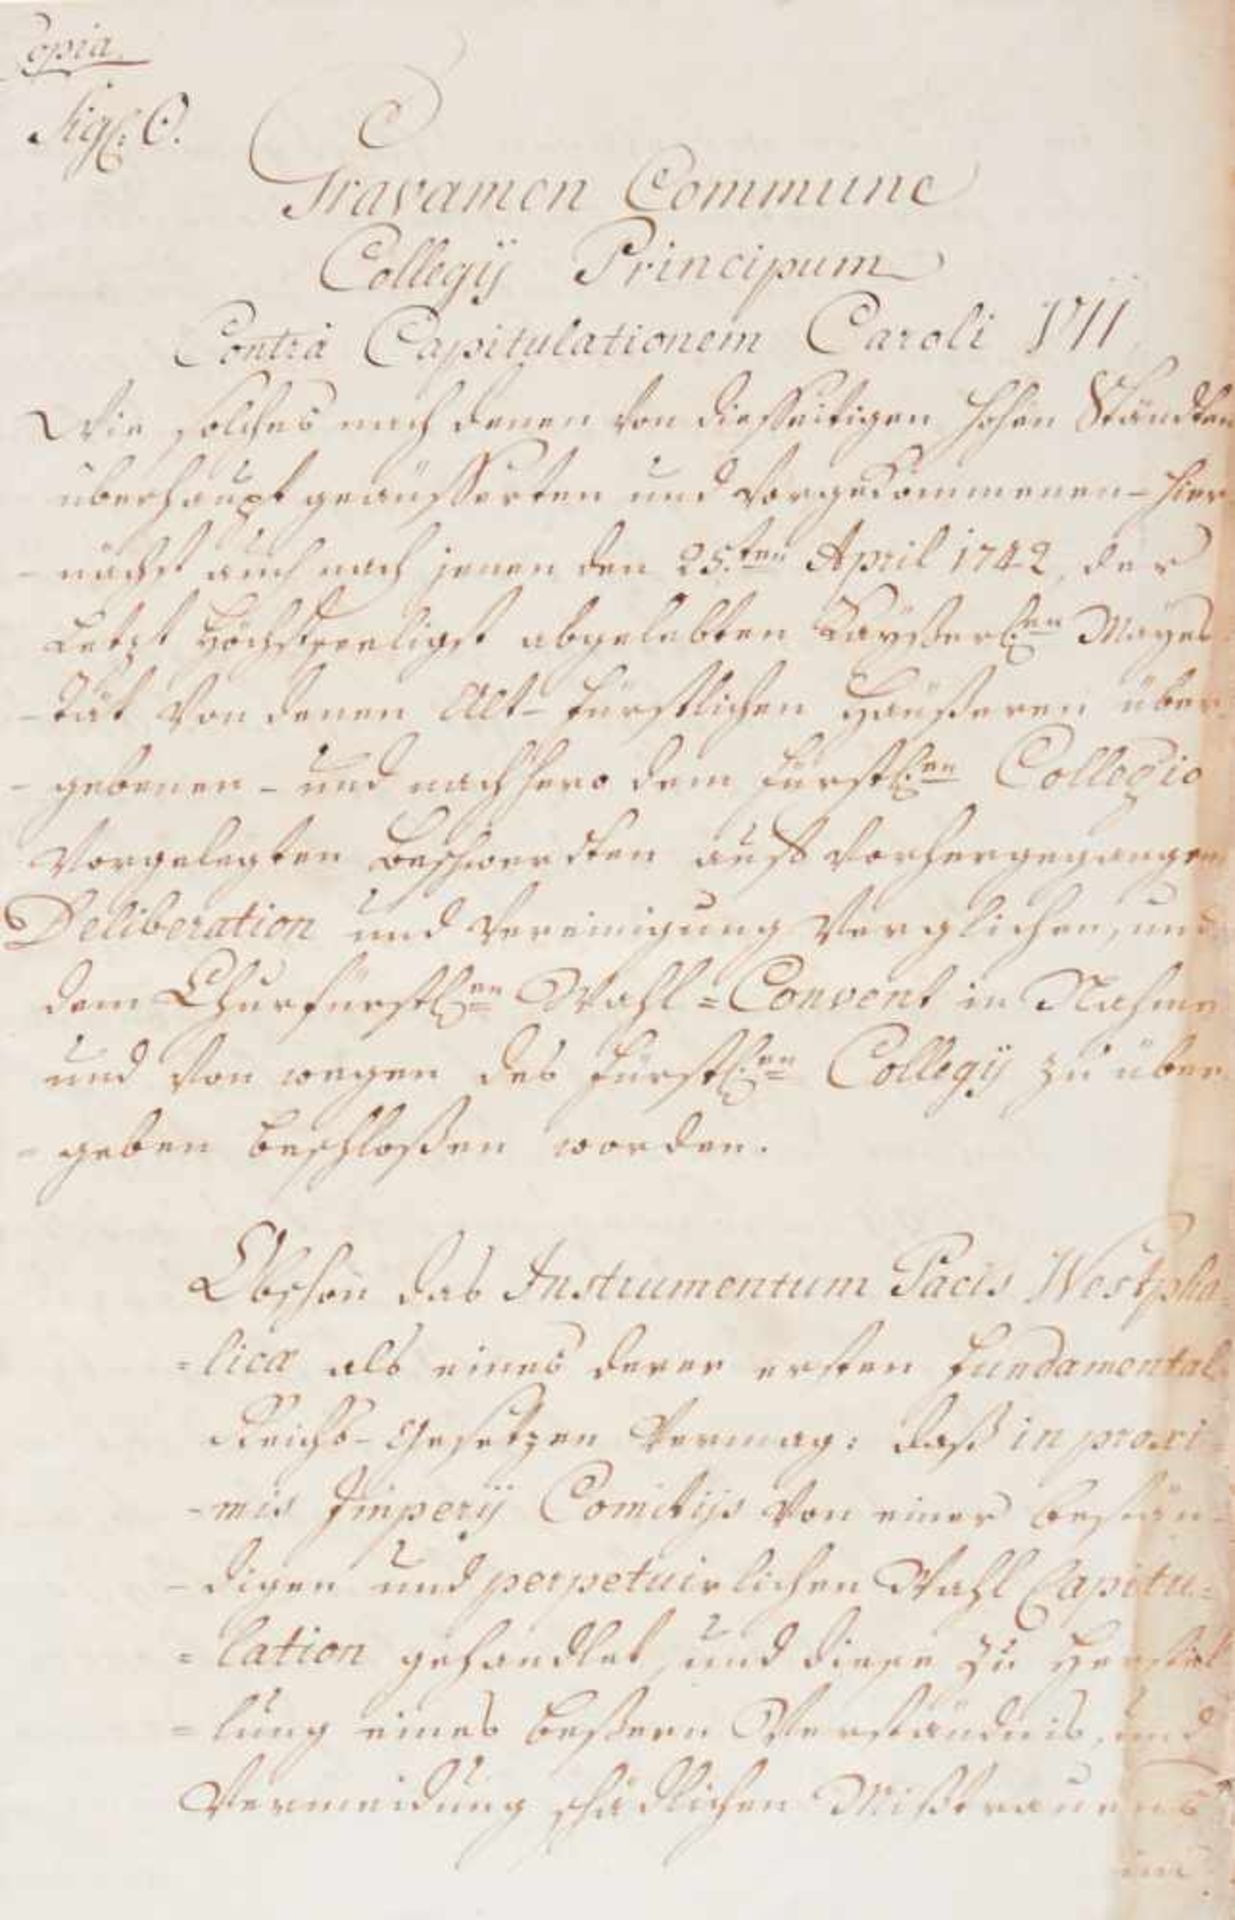 Copia
Sig. C.
Gravamen Commune
Collegij Principum
Contrà Capitulationem Caroli VII
Wie solches nach denen von diesseitigen hohen Ständten
überhaupt geäusserten und vorgekommenen – hier
- nächst auch nach jenen den 25.ten April 1742, der
Letzt höchstseeligst abgelebten Kayßerl.en Mayes
- tät von denen Alt- fürstlichen Häußeren über
- gebenen – und nachhero dem fürstl.en Collegio
vorgelegten Beschwerdten auß vorhergegangen
Deliberation und Vereinigung verglichen, und
dem Churfürstl.en Wahl = Convent in Nahme
und von wegen des fürstl.en Collegij zu über
- geben beschloßen worden.
Obschon das Instrumentum Pacis Westpha
= licæ als eines derer ersten fundamental
Reichs- Gesetzen vermag: daß in proxi
- mis Imperij Comitijs von einer bestän
- digen und perpetuirlichen Wahl Capitu=
= lation gehandlet, und diese zu Herstel
= lung eines beßern Verständnis, und
Vermeidung schädlichen Mißtrauens
um